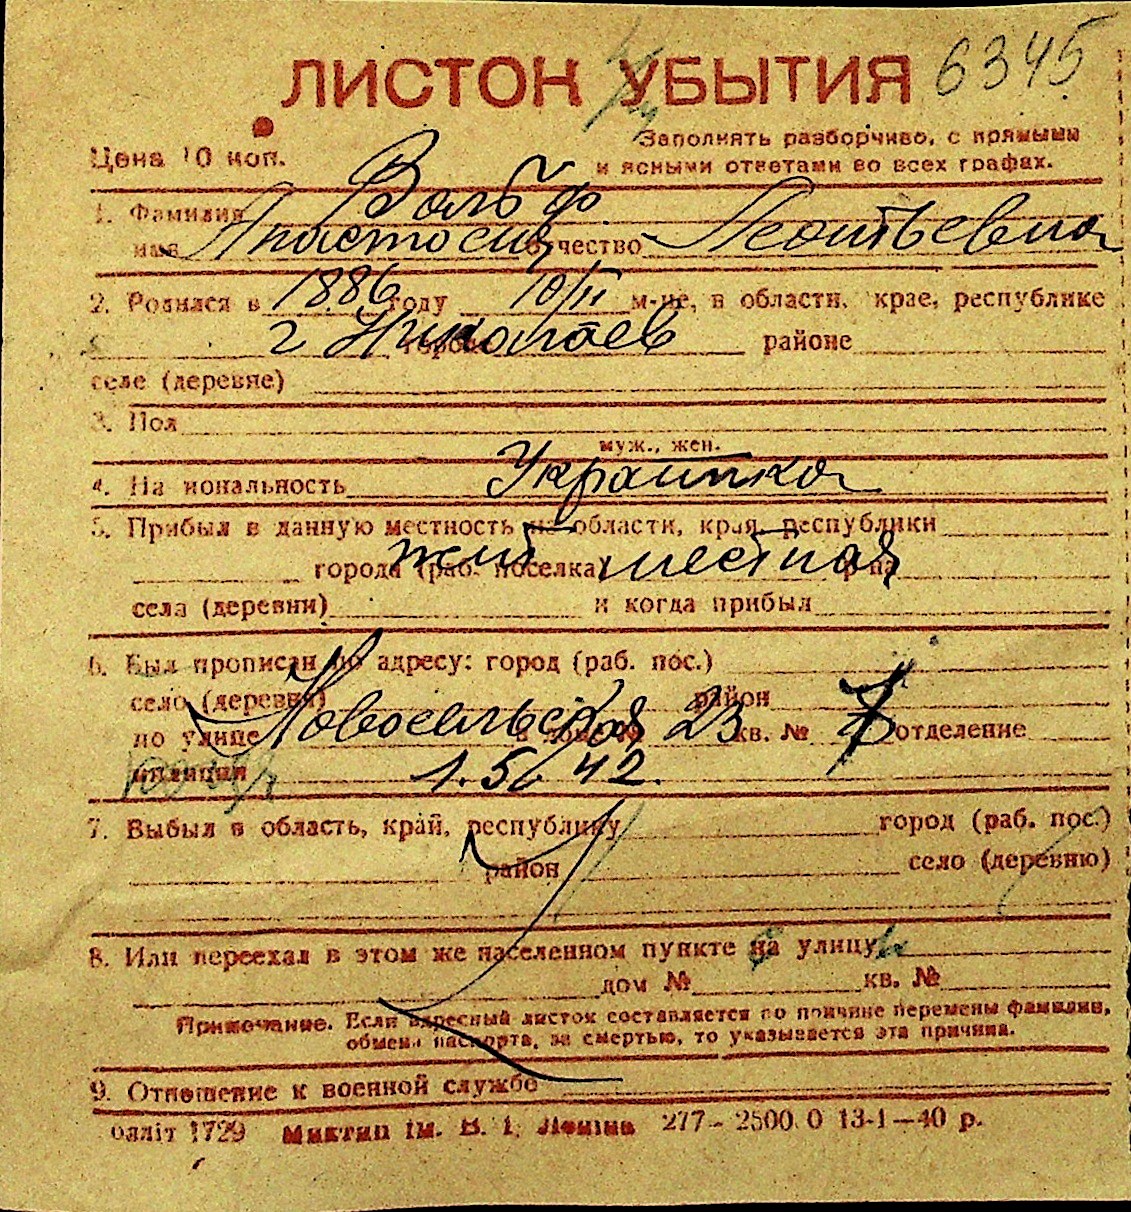 ЛИСТОК УБЫТИЯ 6345
Цена 10 коп.
Заполнять разборчиво, с прямыми
и ясными ответами во всех графах.
1. Фамилия Вольф
имя отчество Леонтьевна
2. Родился в 1886 году 10/II м-це, в области, крае, республике
г Николаев городе районе
селе (деревне)
3. Пол
муж., жен.
4. Национальность Украинка
5. Прибыл в данную местность из области, края, республики
города (раб. поселка) местная р-на
села (деревни) и когда прибыл
6. Был прописан по адресу: город (раб. пос.)
село (деревня) район
по улице Новосельская в доме № 23 кв. № 7 отделение
милиции 42.
7. Выбыл в область, край, республику город (раб. пос.)
район село (деревню)
8. Или переехал в этом же населенном пункте на улицу
дом № кв. №
Примечание. Если адресный листок составляется по причине перемены фамилии,
обмена паспорта, за смертью, то указывается эта причина.
9. Отношение к военной службе
1729 ім. В. І. Леніна 277–2500 0 13-1—40 р.